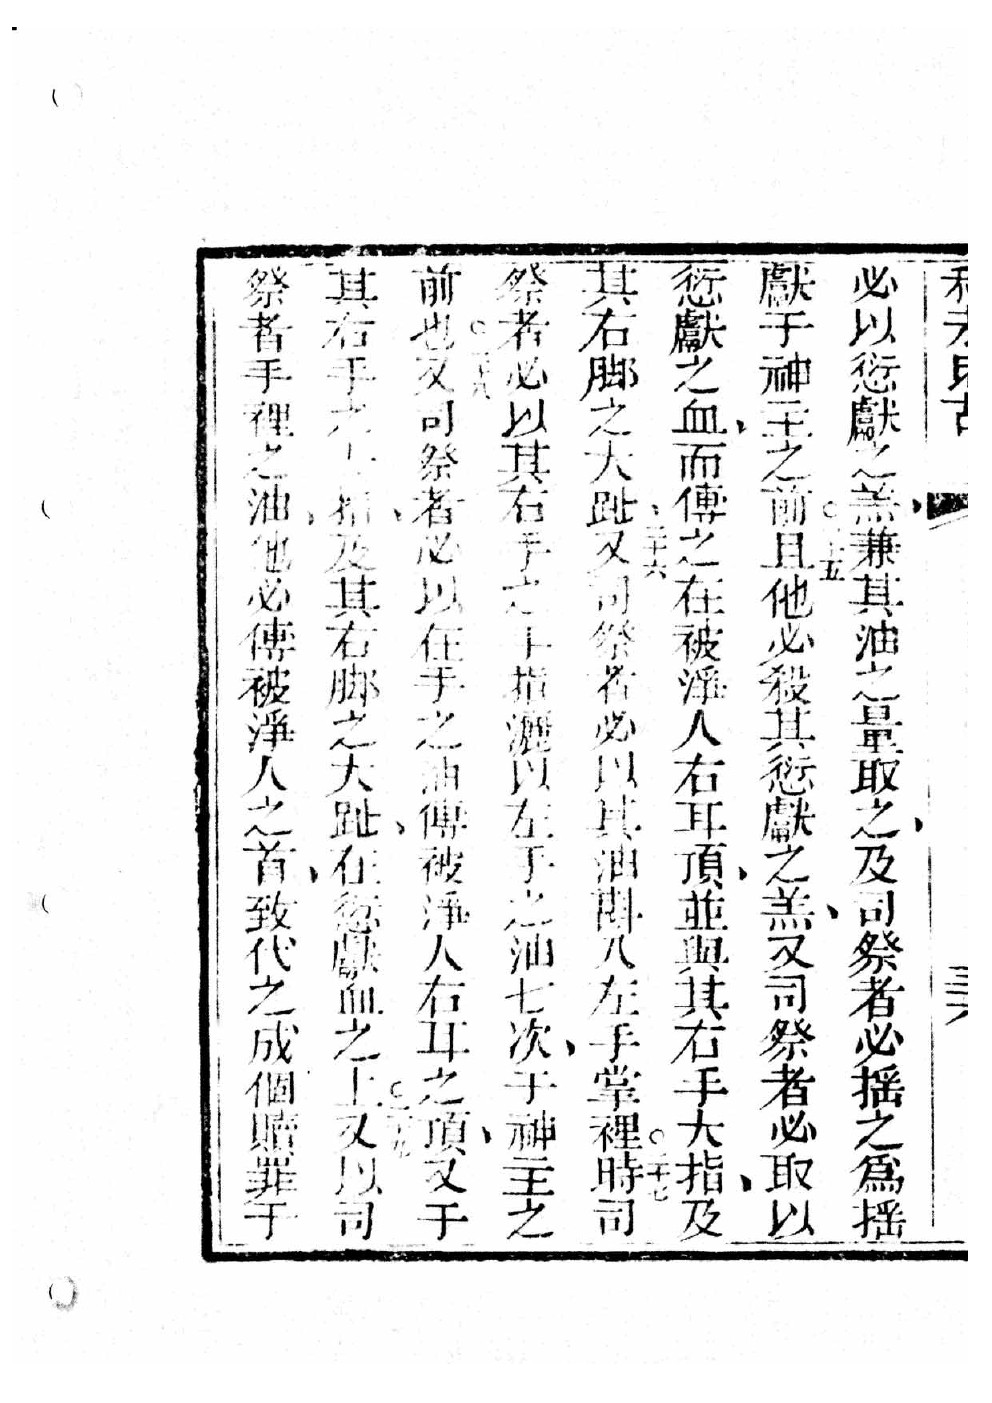 必以愆獻之羔兼其油之量取之、及司祭者必揺之為揺
獻于神主之前○二十五且他必殺其愆獻之羔、又司祭者必取以
愆獻之血、而傳之在被淨人右耳頂、並與其右手大指、及
其右脚之大趾、二十六又司祭者必以其油斟入左手掌裡○二十七時司
祭者必以其右手之十指灑以左手之油七次、于神主之
前也○又司祭者必以在手之油傳被淨人右耳之頂、又于
其右手之大指、及其右脚之大趾、在愆獻血之上○二十九又以司
祭者手裡之油、他必傳被淨人之首、致代之成個贖罪于